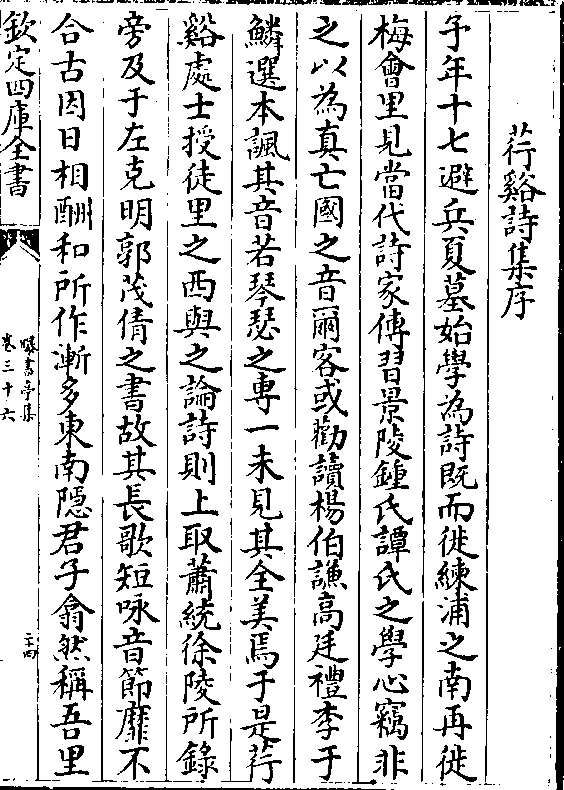 荇谿詩集序
予年十七避兵夏墓始學為詩既而徙練浦之南再徙
梅會里見當代詩家傳習景陵鍾氏譚氏之學心竊非
之以為真亡國之音爾客或勸讀楊伯謙高廷禮李于
鱗選本諷其音若琴瑟之專一未見其全美焉于是荇
谿處士授徒里之西與之論詩則上取蕭統徐陵所錄
旁及于左克明郭茂倩之書故其長歌短咏音節靡不
合古因日相酬和所作漸多東南隱君子翕然稱吾里
欽定四庫全書
曝書亭集
卷三十六
二十四